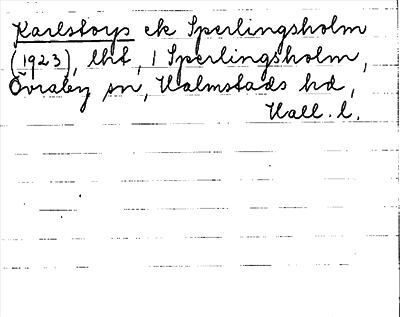 Karlstorp ek Sperlingsholm
(1923), lht, 1 Sperlingsholm,
Övraby sn, Halmstads hd,
Hall. l.